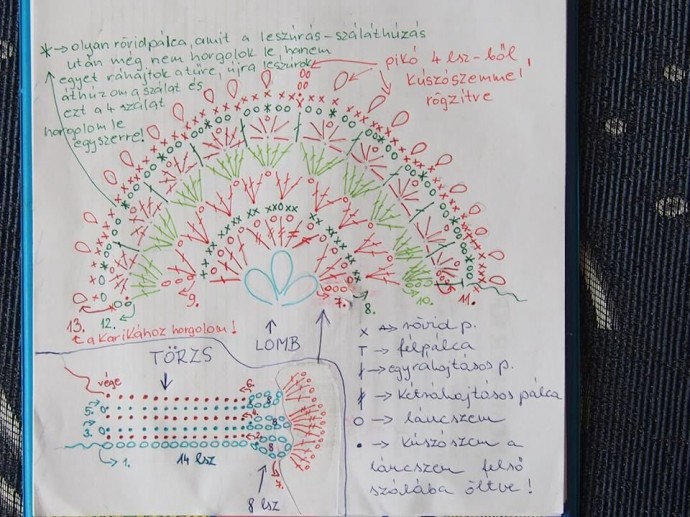 * → olyan rövidpálca, amit a leszúrás-száláthúzás
után még nem horgolok le, hanem
egyet ráhajtok a tűre, újra leszúrok
áthúzom a szálat és
ezt a 4 szálat
horgolom le
egyszerre!
pikó 4 lsz-ből,
kúszószemmel
rögzítve
13.
12.
9.
7.
8.
10.
11.
t a karikához horgolom!
LOMB
TÖRZS
vége
6.
5.
3.
1.
14 lsz
7.
8 lsz
8
8
8
x → rövid p.
T → félpálca
→ egyráhajtásos p.
→ kétráhajtásos pálca
o → láncszem
• → kúszószem a
láncszem felső
szálába öltve!